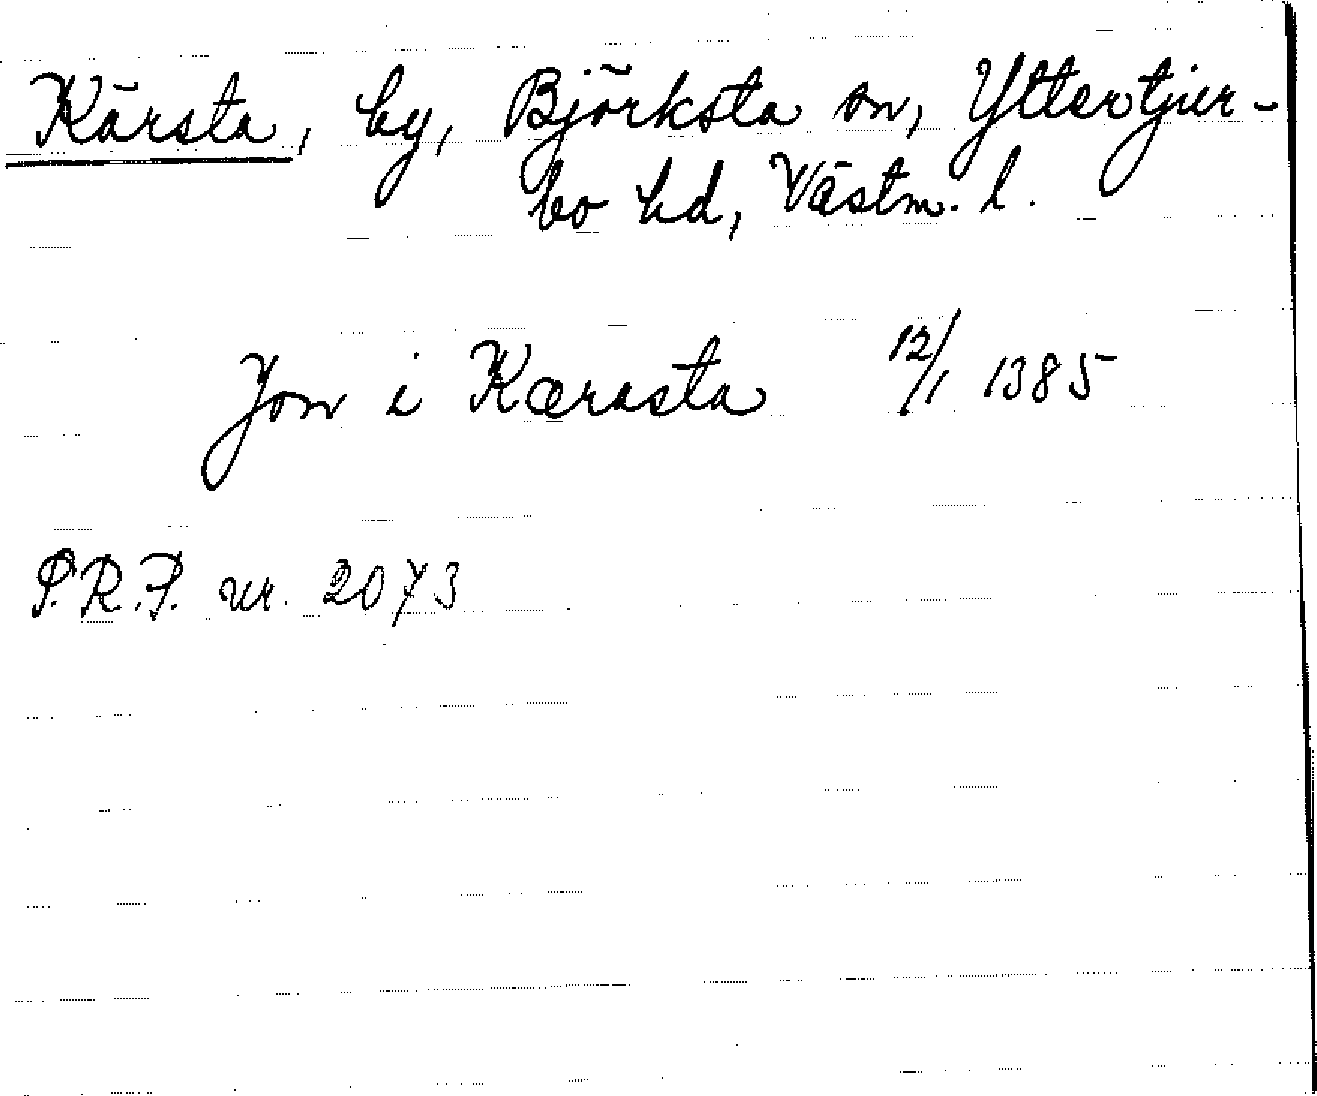 Kärsta, by, Björksta sn, Yttertjur-
bo hd, Västm. l.
Jon i Kærasta 12/1 1385
S.R.P. nr. 2073